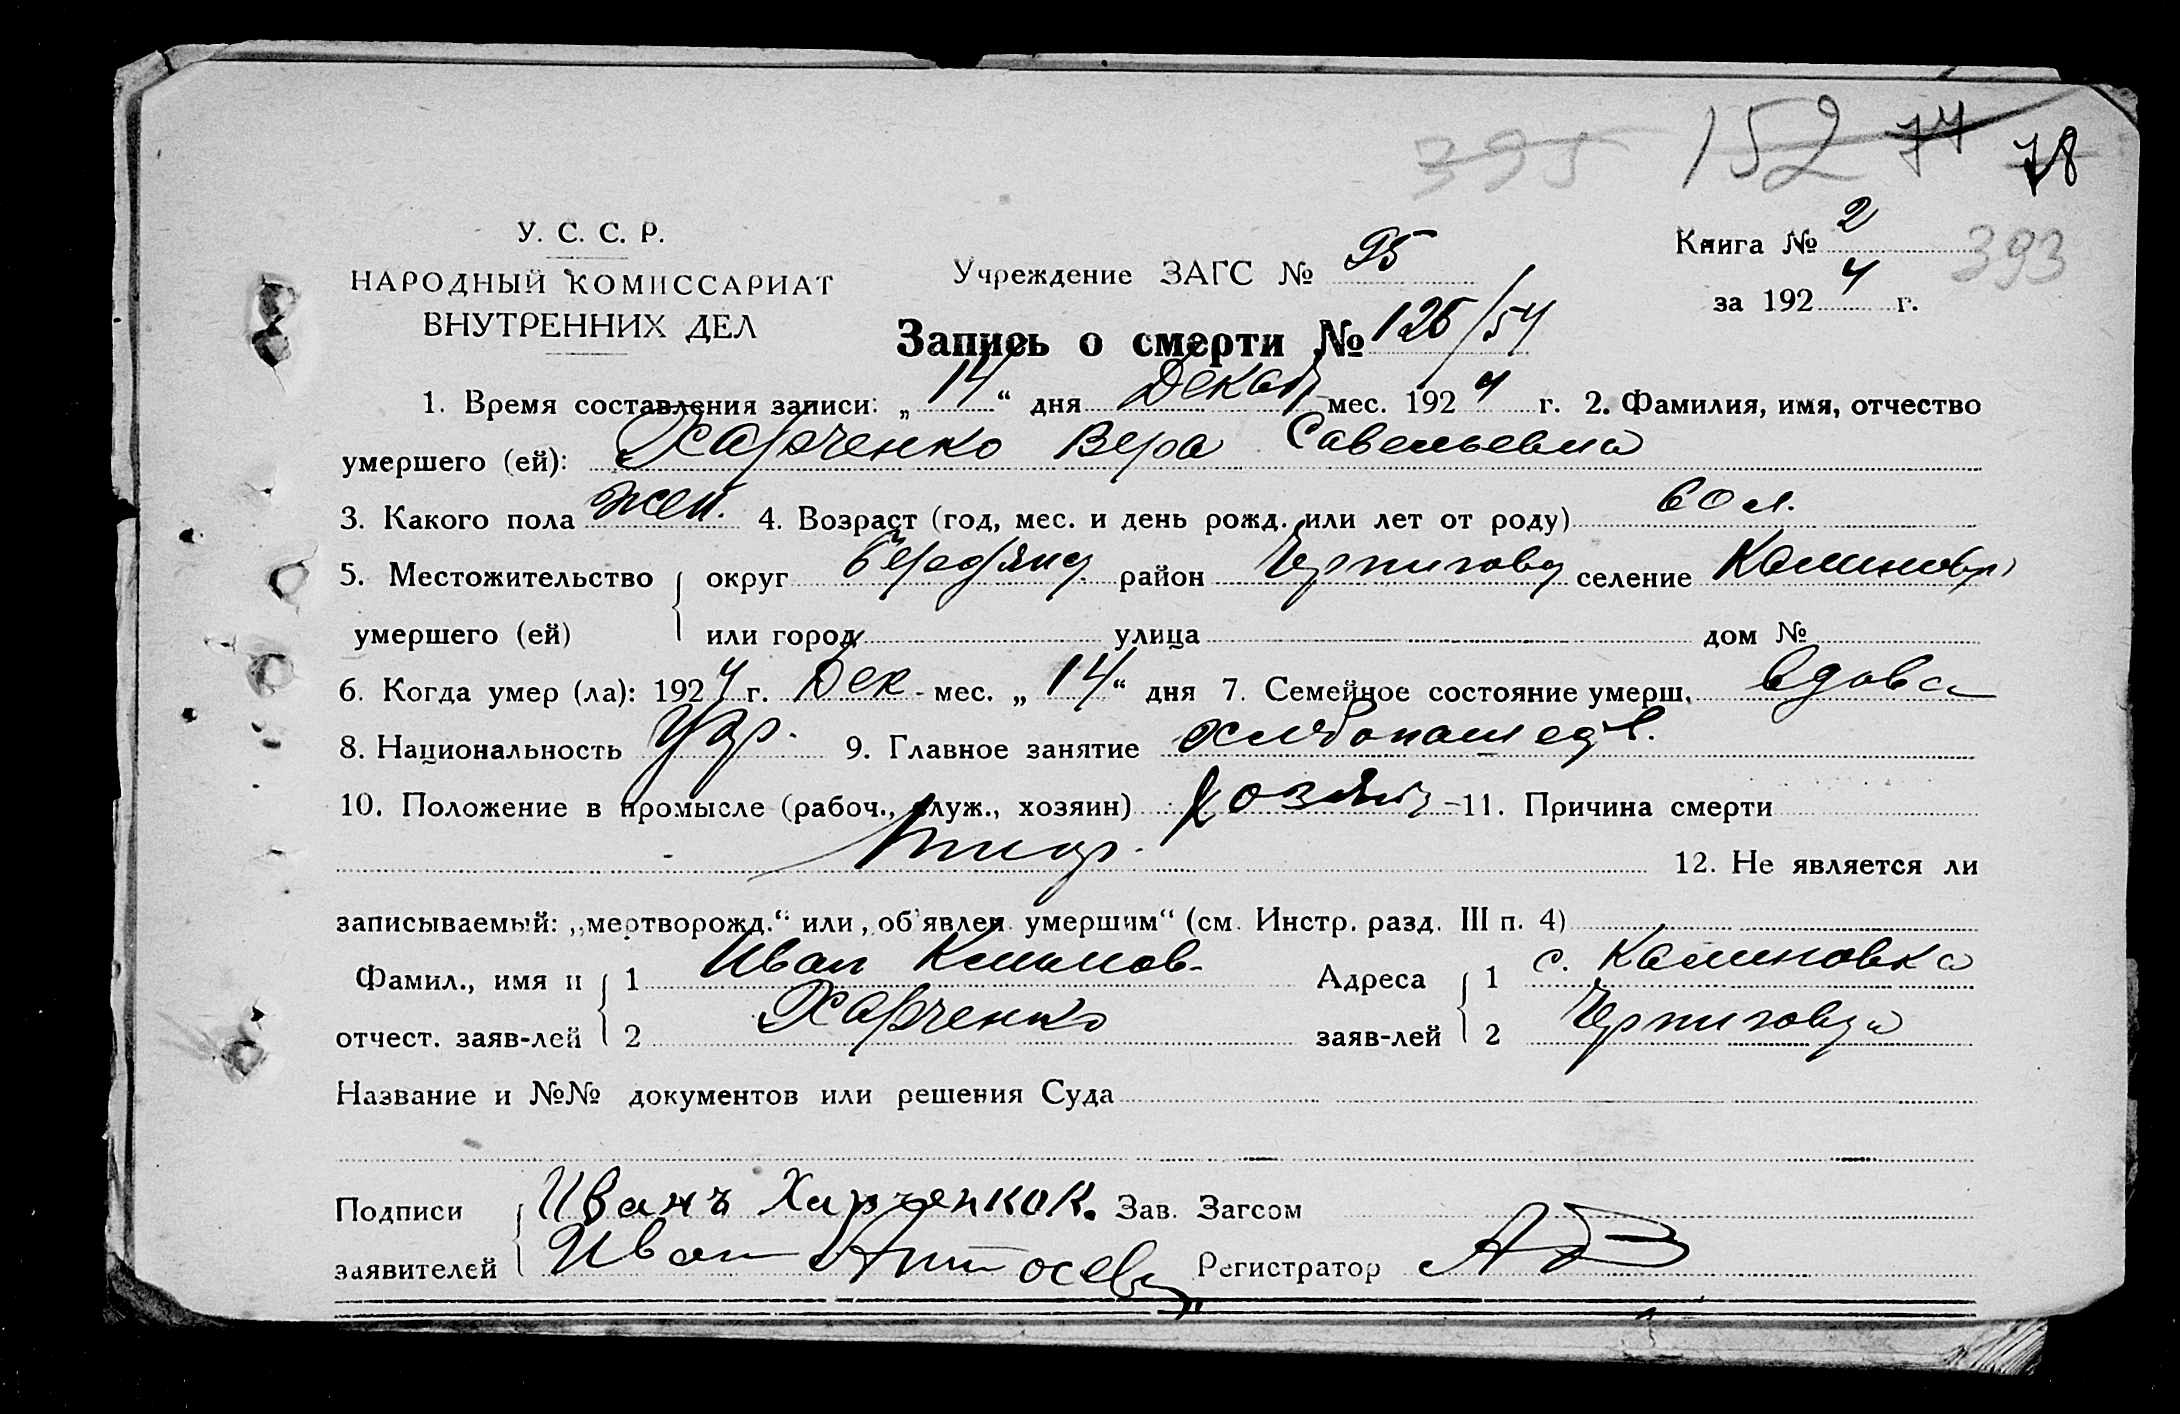 395 152 77 78
У. С. С. Р.
НАРОДНЫЙ КОМИССАРИАТ
ВНУТРЕННИХ ДЕЛ
Учреждение ЗАГС № 95
Книга № 2
393
за 1924 г.
Запись о смерти № 126/54
1. Время составления записи: „14“ дня Декаб мес. 1924 г. 2. Фамилия, имя, отчество
умершего (ей): Харченко Вера Савельевна
3. Какого пола жен. 4. Возраст (год, мес. и день рожд. или лет от роду) 60 л.
5. Местожительство округ Бердянц район Черниговц селение Калиновк
умершего (ей) или город улица дом №
6. Когда умер (ла): 1924 г. Дек. мес. „14“ дня 7. Семейное состояние умерш. вдова
8. Национальность Укр. 9. Главное занятие хлебопашедв.
10. Положение в промысле (рабоч., служ., хозяин) хозяин 11. Причина смерти
12. Не является ли
записываемый: „мертворожд.“ или „об'явлен умершим“ (см. Инстр. разд. III п. 4)
Фамил., имя и 1 Иван Климов- Адреса 1 с. Калиновка
отчест. заяв-лей 2 Харченко заяв-лей 2 Черниговца
Название и №№ документов или решения Суда
Подписи Иванъ Харченко К. Зав. Загсом
заявителей Иван Регистратор